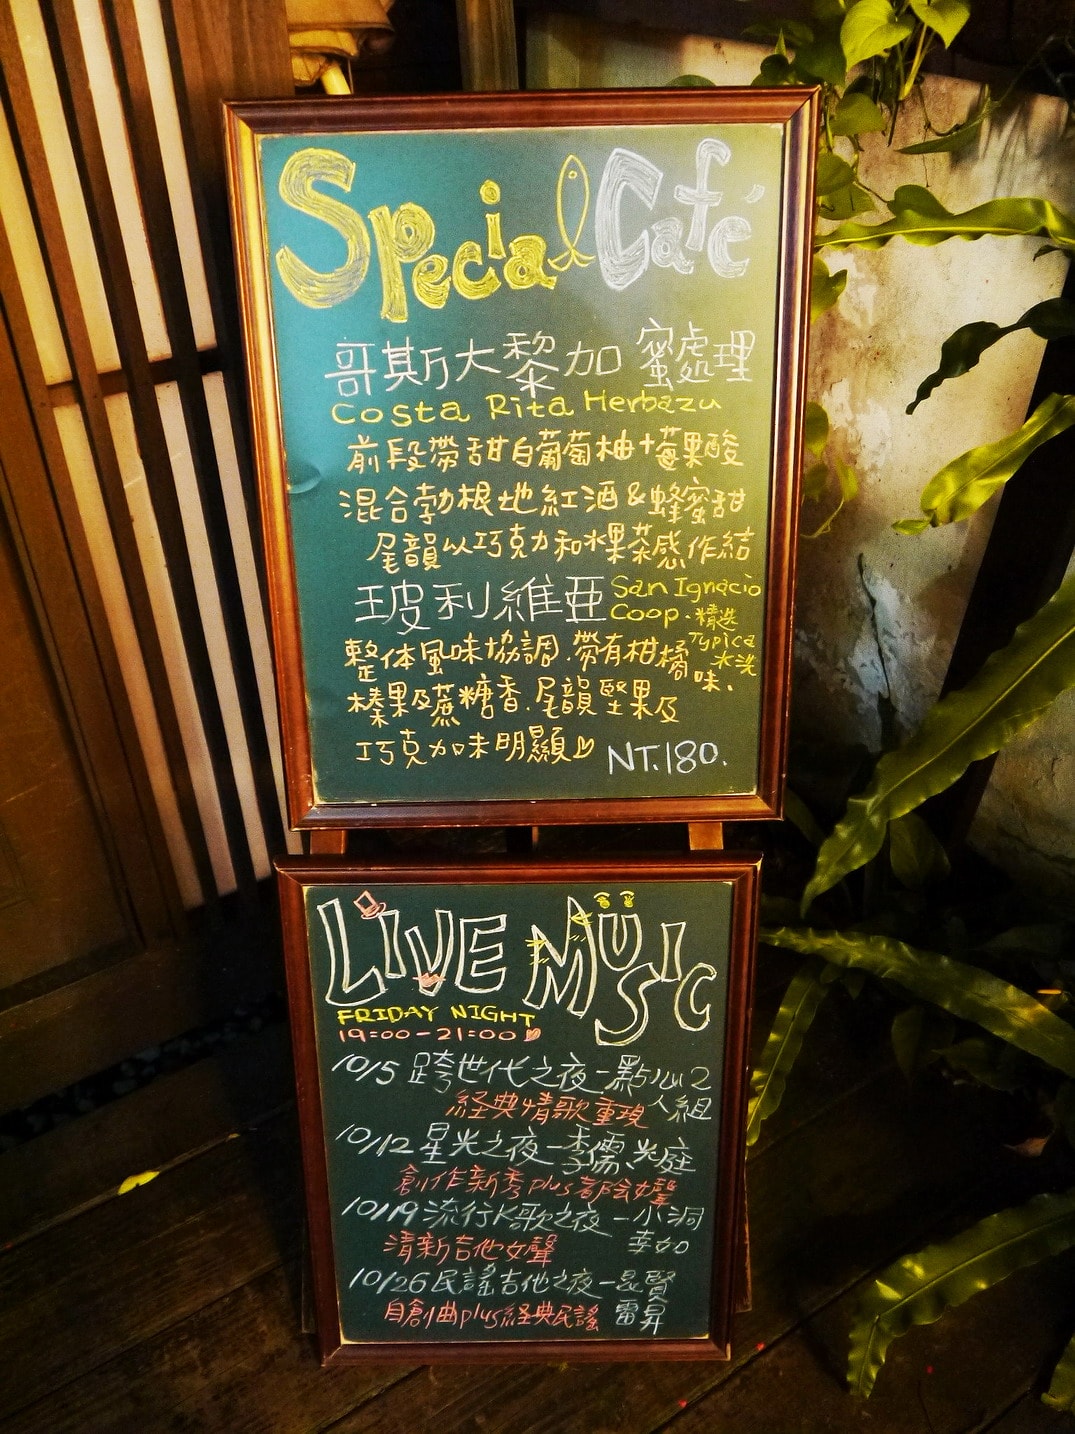 Special Café
哥斯大黎加 蜜處理
Costa Rita Herbazu
前段帶甜白葡萄柚+莓果酸
混合勃根地紅酒&蜂蜜甜
尾韻以巧克力和水果茶感作結
玻利維亞 San Ignacio
Coop. 精選
Typica
水洗
整体風味協調.帶有柑橘味、
榛果及蔗糖香.尾韻堅果及
巧克力味明顯
NT.180.
LIVE MUSIC
FRIDAY NIGHT
19:00-21:00
10/5 跨世代之夜-點心2
人組
経典情歌重現
10/12 星光之夜-李儒、光庭
創作新秀plus都会女聲
10/19 流行K歌之夜-小洞
李如
清新吉他女聲
10/26 民謠吉他之夜-昆賢
雷昇
自創曲plus経典民謠